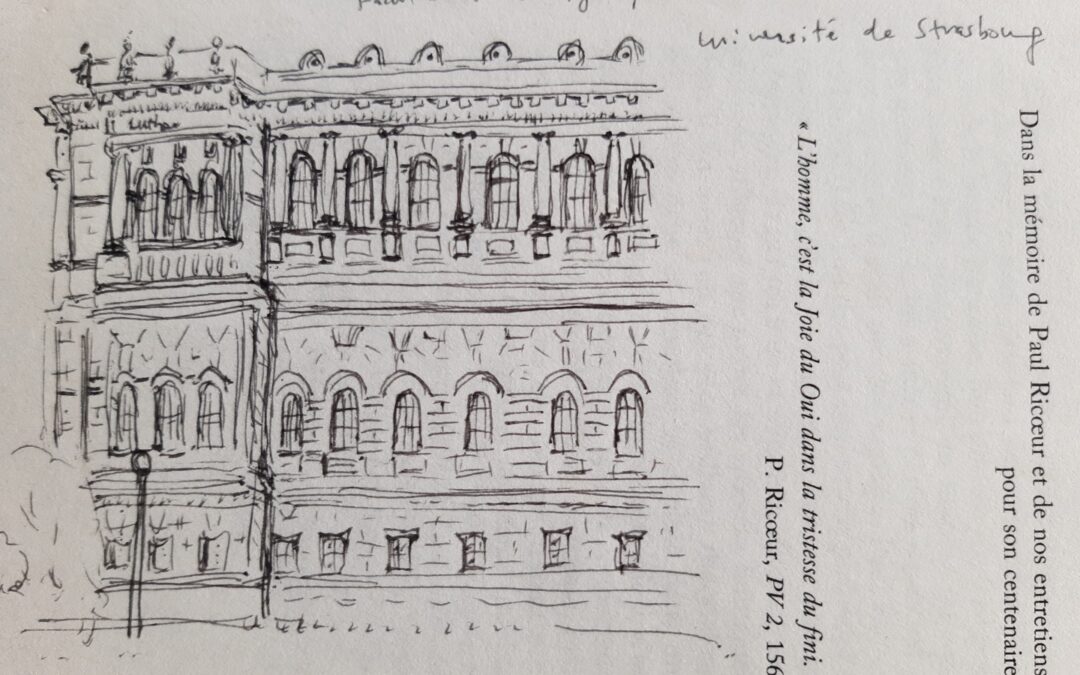 Université de Strasbourg
Luther
Dans la mémoire de Paul Ricœur et de nos entretiens
pour son centenaire
« L'homme, c'est la Joie du Oui dans la tristesse du fini.
P. Ricœur, PV 2, 156